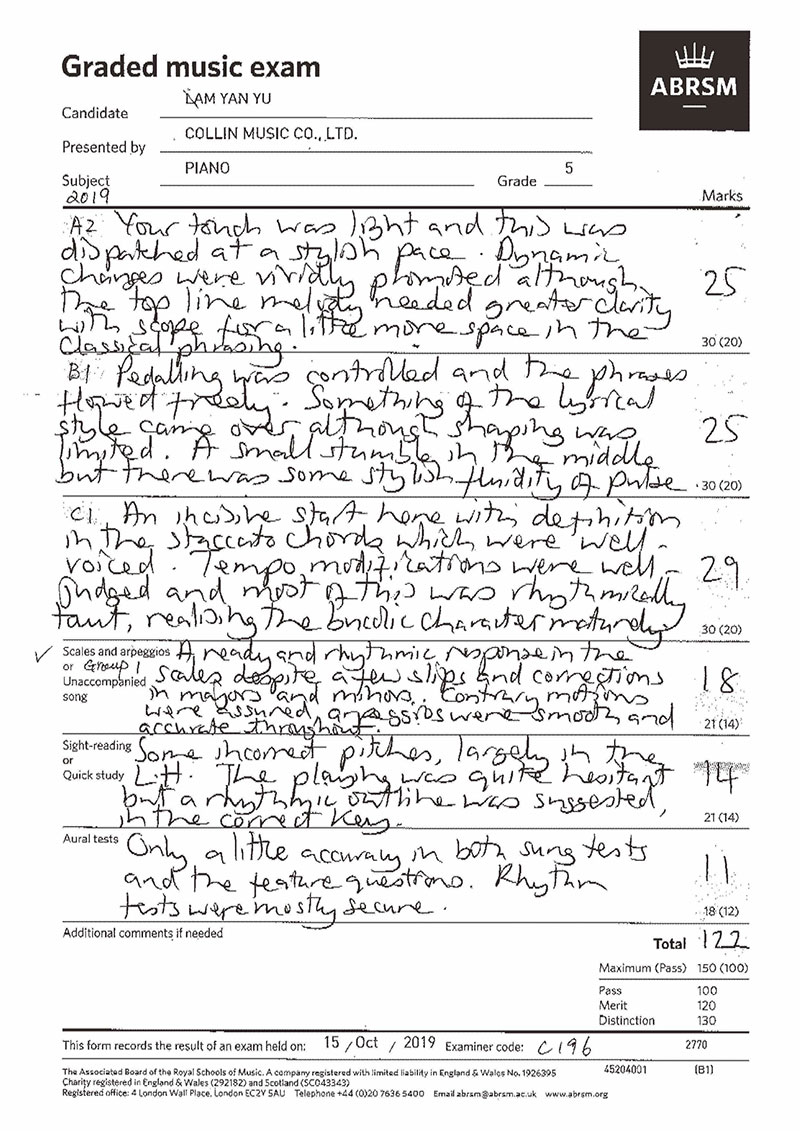 Graded music exam
ABRSM
Candidate LAM YAN YU
Presented by COLLIN MUSIC CO., LTD.
Subject PIANO Grade 5
2019 Marks
A2 Your touch was light and this was
dispatched at a stylish pace. Dynamic
changes were vividly promoted although
the top line melody needed greater clarity
with scope for a little more space in the
Classical phrasing.
25
30 (20)
B1 Pedalling was controlled and the phrases
flowed freely. Something of the lyrical
style came over although shaping was
limited. A small stumble in the middle
but there was some stylish fluidity of pulse
25
30 (20)
C1 An incisive start here with definition
in the staccato chords which were well-
voiced. Tempo modifications were well-
judged and most of this was rhythmically
taut, realising the bucolic character maturely.
29
30 (20)
Scales and arpeggios
or Group 1
Unaccompanied
song
A ready and rhythmic response in the
scales despite a few slips and corrections
in majors and minors. Contrary motions
were assured, arpeggios were smooth and
accurate throughout.
18
21 (14)
Sight-reading
or
Quick study
Some incorrect pitches, largely in the
L.H. The playing was quite hesitant
but a rhythmic outline was suggested,
in the correct key.
14
21 (14)
Aural tests
Only a little accuracy in both sung tests
and the feature questions. Rhythm
tests were mostly secure.
11
18 (12)
Additional comments if needed
Total 122
Maximum (Pass) 150 (100)
Pass 100
Merit 120
Distinction 130
This form records the result of an exam held on: 15 / Oct / 2019 Examiner code: C196 2770
The Associated Board of the Royal Schools of Music. A company registered with limited liability in England & Wales No. 1926395 45204001 (B1)
Charity registered in England & Wales (292182) and Scotland (SC043343)
Registered office: 4 London Wall Place, London EC2Y 5AU Telephone +44 (0)20 7636 5400 Email abrsm@abrsm.ac.uk www.abrsm.org